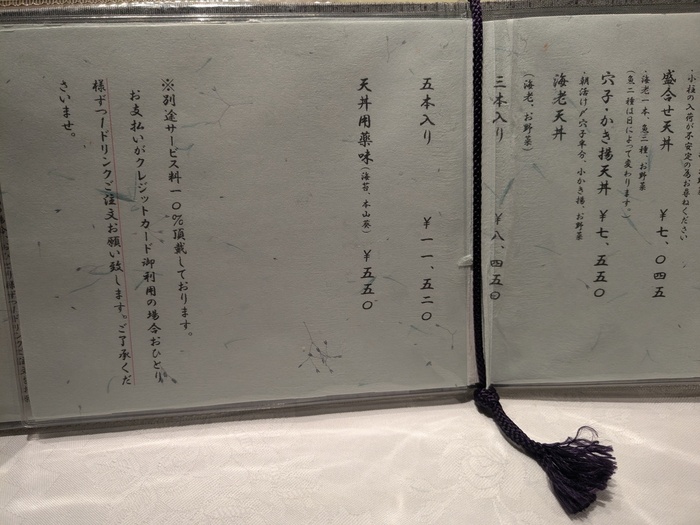 ・小柱の入荷が不安定の為お尋ねください
盛合せ天丼 ￥七、〇四五
・海老一本、魚二種、お野菜
（魚二種は日によって変わります。）
穴子・かき揚天丼 ￥七、五五〇
・朝活け〆穴子半分、小かき揚、お野菜
海老天丼
（海老、お野菜）
三本入り ￥八、四五〇
五本入り ￥一一、五二〇
天丼用薬味（海苔、本山葵） ￥五五〇
※別途サービス料一〇％頂戴しております。
お支払いがクレジットカード御利用の場合おひとり
様ずつ一ドリンクご注文お願い致します。ご了承くだ
さいませ。